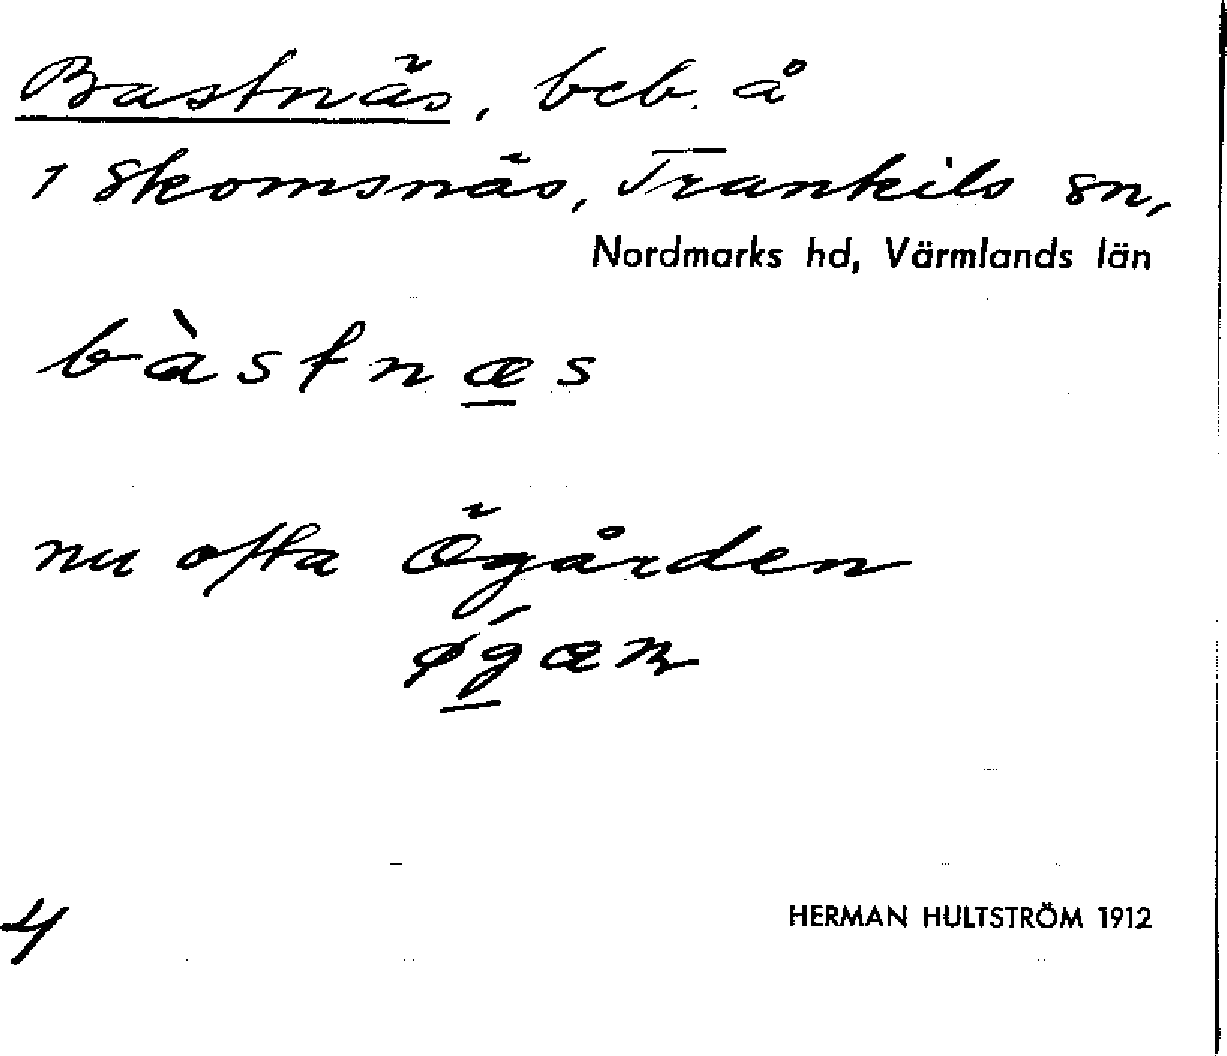 Bastnäs, beb. å
1 Skomsnäs, Trankils sn,
Nordmarks hd, Värmlands län
bàstnæs
nu ofta Ögården
øǵæɳ
4
HERMAN HULTSTRÖM 1912